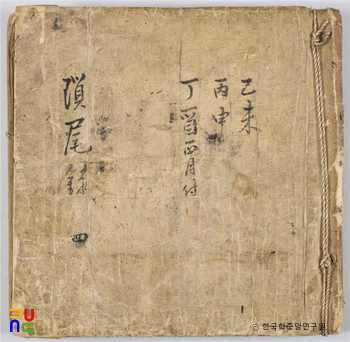 乙未
丙申
丁酉正月付
瑣尾
四
ⓒ 한국학중앙연구원